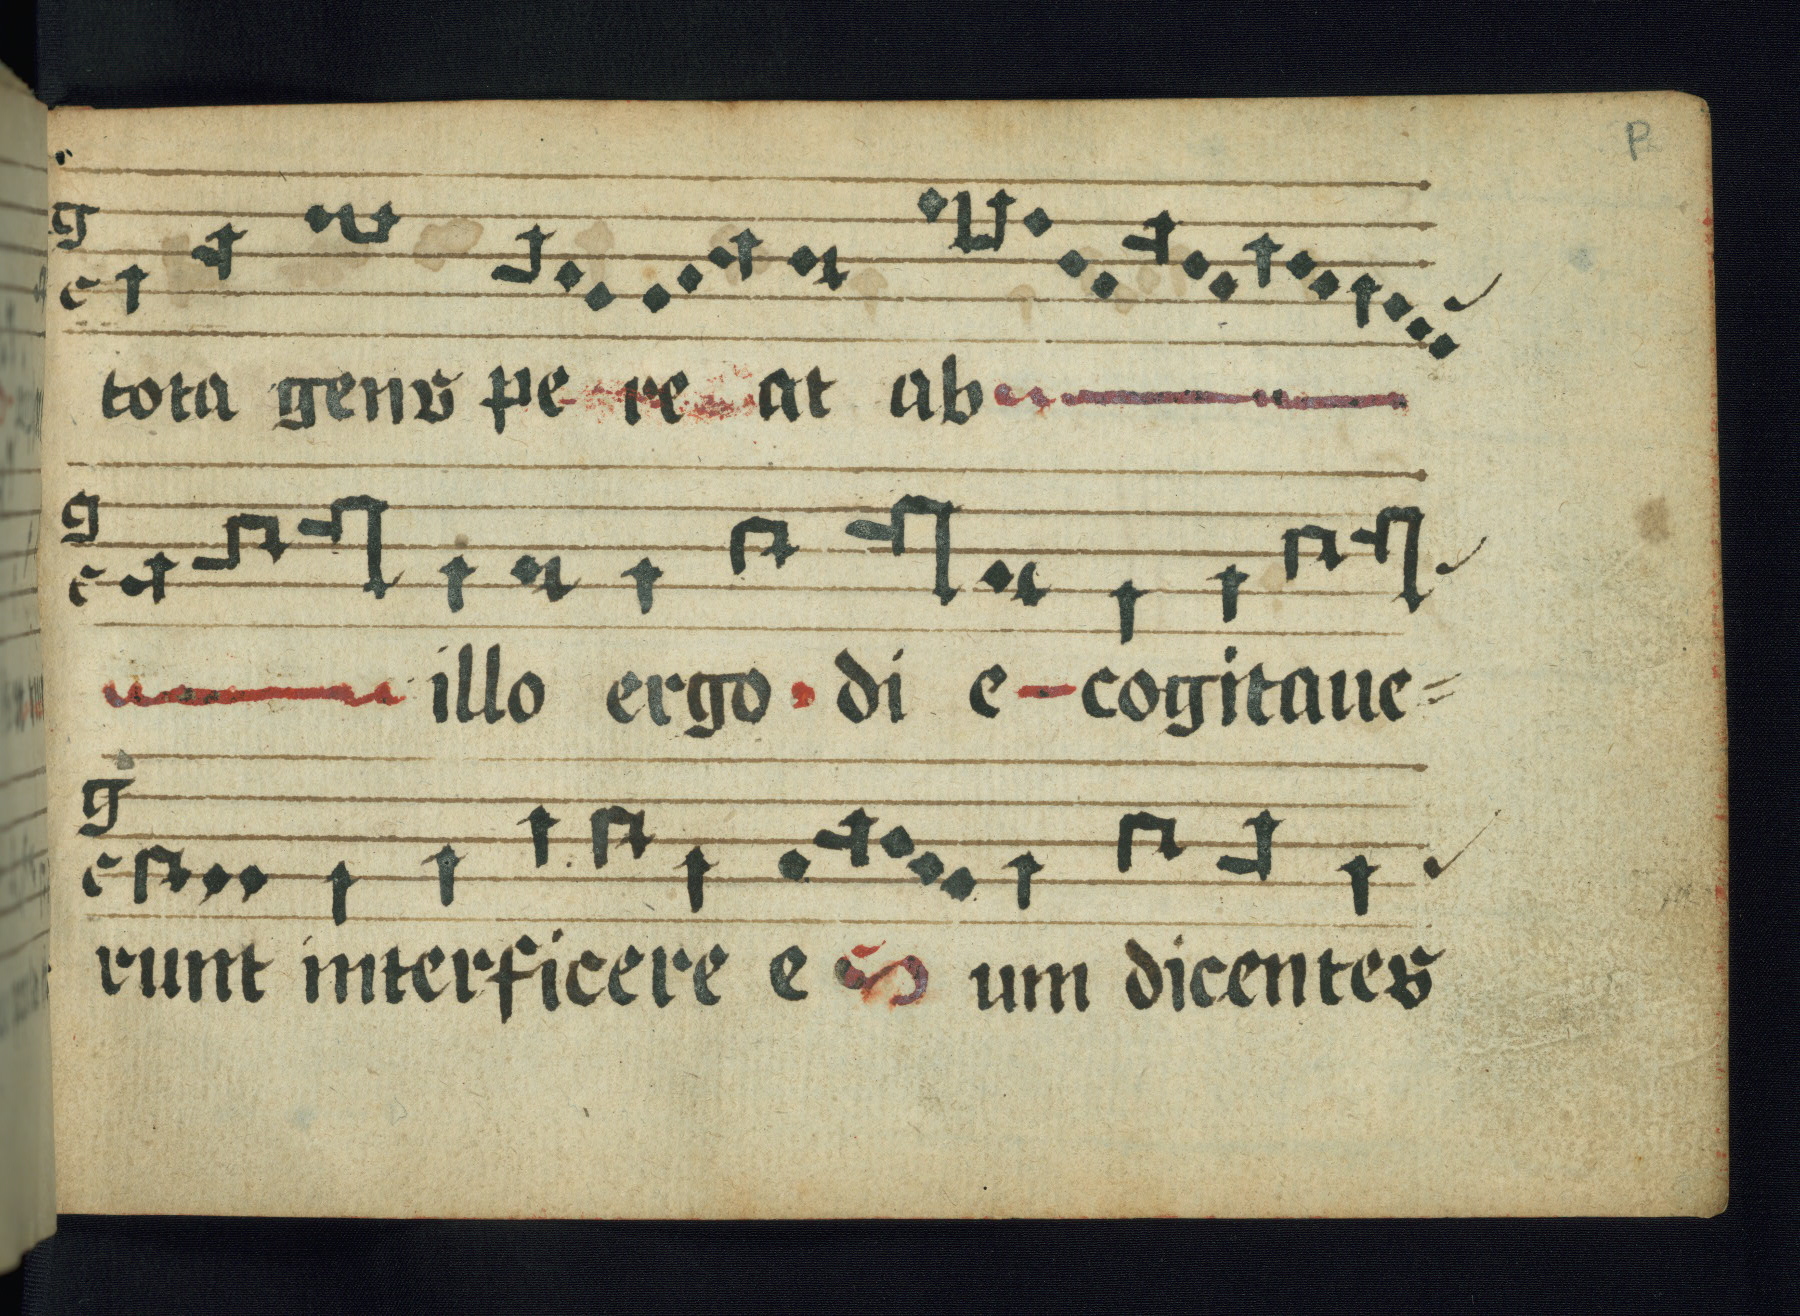 P
g
c
tota gens pe re at ab
g
c
illo ergo di e cogitaue=
g
c
runt interficere e um dicentes